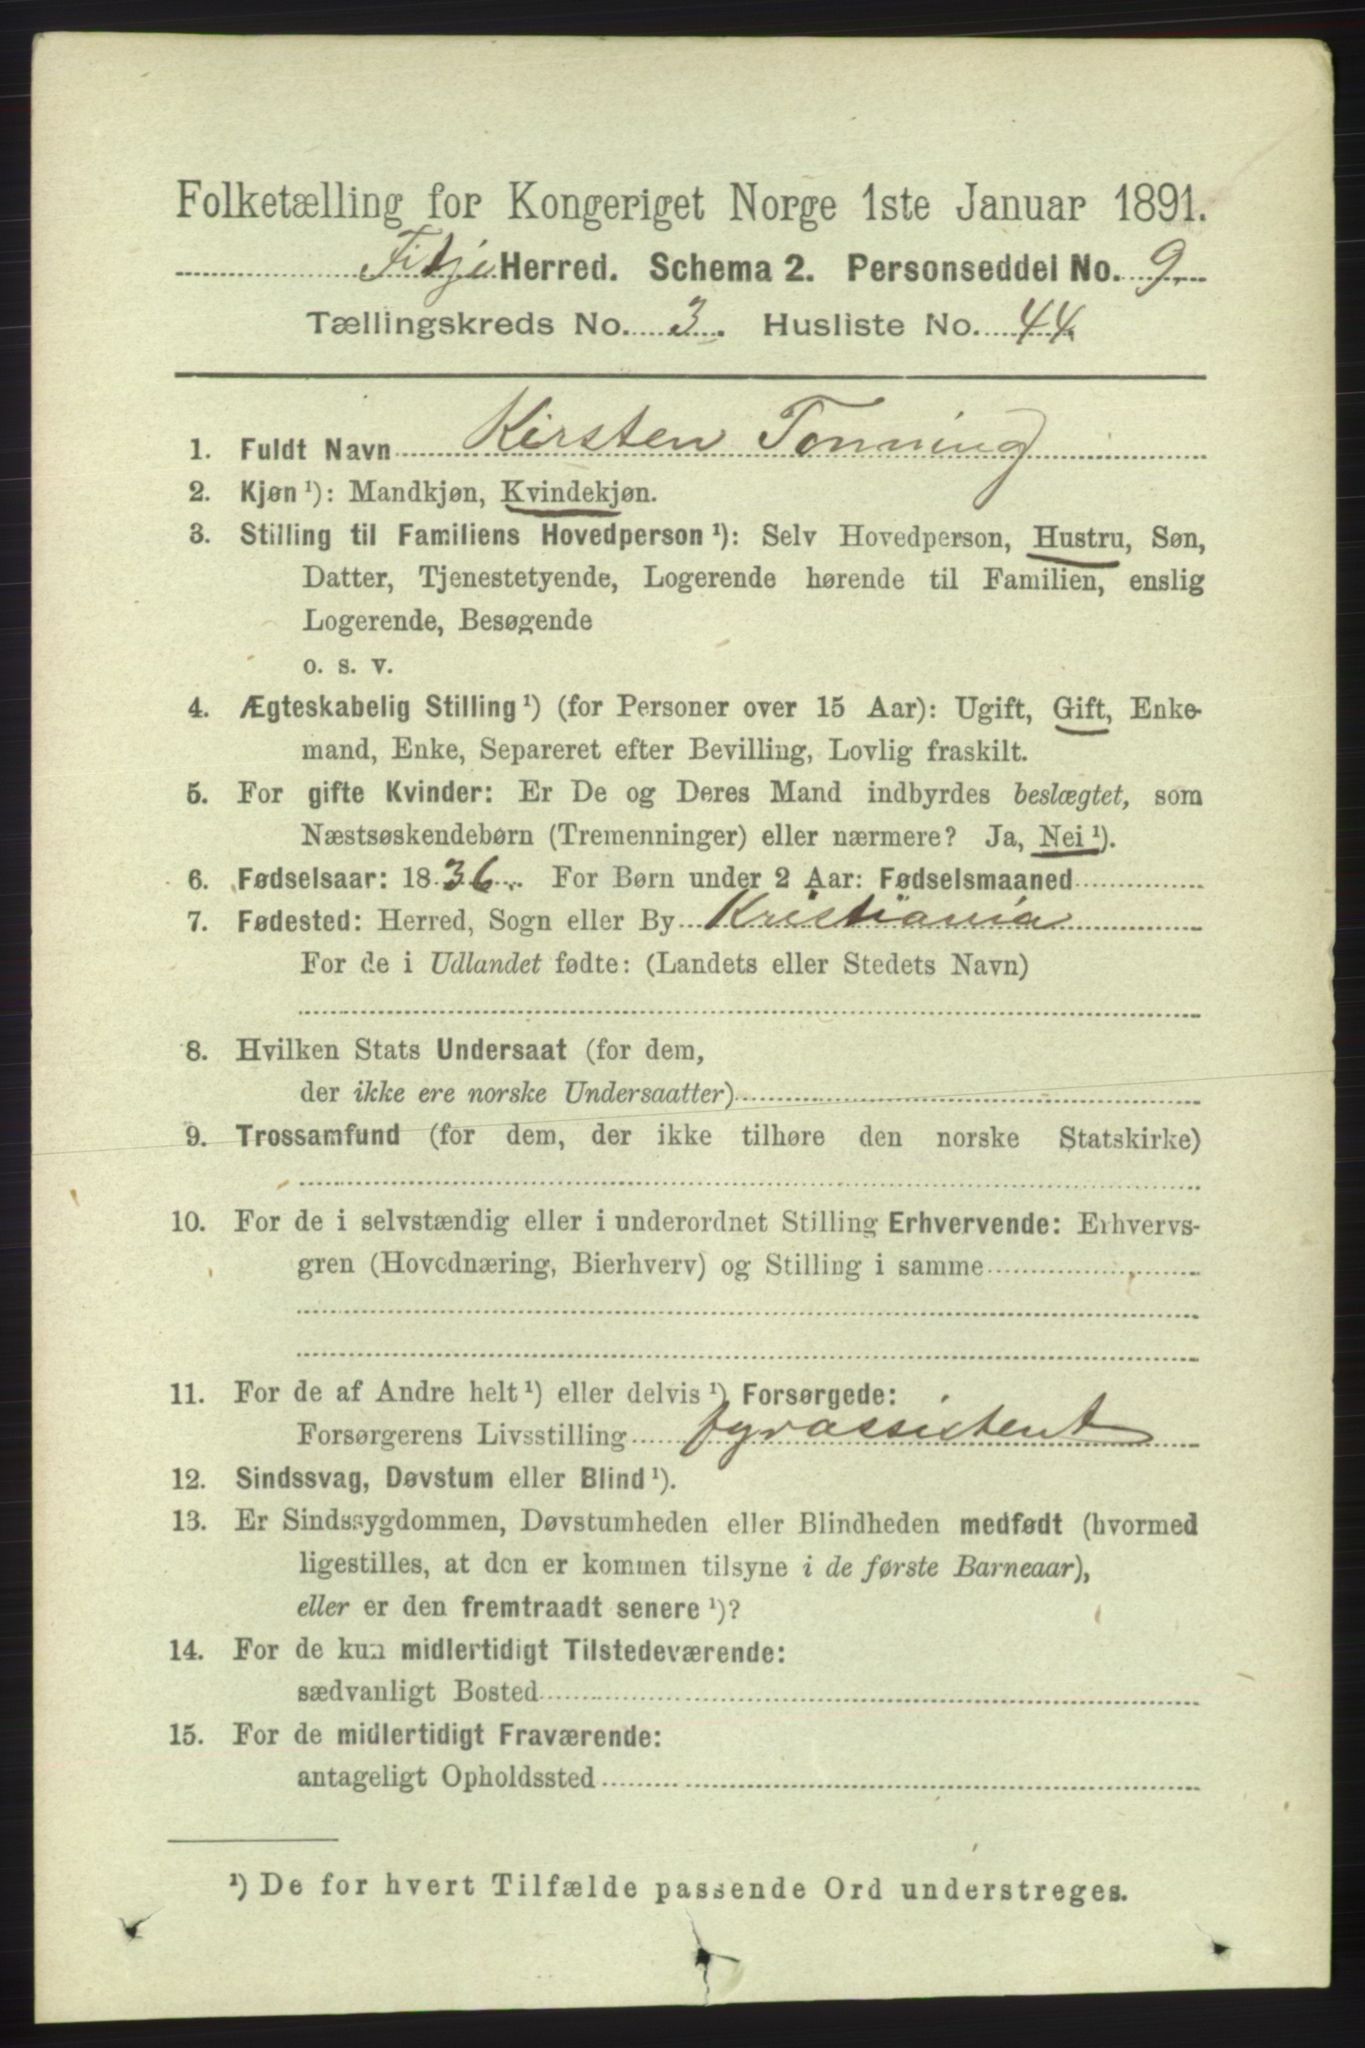 Folketælling for Kongeriget Norge 1ste Januar 1891.
Fitje Herred. Schema 2. Personseddel No. 9.
Tællingskreds No. 3. Husliste No. 44.
1. Fuldt Navn Kirsten Tonning
2. Kjøn ¹): Mandkjøn, Kvindekjøn.
3. Stilling til Familiens Hovedperson ¹): Selv Hovedperson, Hustru, Søn,
Datter, Tjenestetyende, Logerende hørende til Familien, enslig
Logerende, Besøgende
o. s. v.
4. Ægteskabelig Stilling ¹) (for Personer over 15 Aar): Ugift, Gift, Enke-
mand, Enke, Separeret efter Bevilling, Lovlig fraskilt.
5. For gifte Kvinder: Er De og Deres Mand indbyrdes beslægtet, som
Næstsøskendebørn (Tremenninger) eller nærmere? Ja, Nei ¹).
6. Fødselsaar: 1836. For Børn under 2 Aar: Fødselsmaaned
7. Fødested: Herred, Sogn eller By Kristiania
For de i Udlandet fødte: (Landets eller Stedets Navn)
8. Hvilken Stats Undersaat (for dem,
der ikke ere norske Undersaatter)
9. Trossamfund (for dem, der ikke tilhøre den norske Statskirke)
10. For de i selvstændig eller i underordnet Stilling Erhvervende: Erhvervs-
gren (Hovednæring, Bierhverv) og Stilling i samme
11. For de af Andre helt ¹) eller delvis ¹) Forsørgede:
Forsørgerens Livsstilling fyrassistent
12. Sindssvag, Døvstum eller Blind ¹).
13. Er Sindssygdommen, Døvstumheden eller Blindheden medfødt (hvormed
ligestilles, at den er kommen tilsyne i de første Barneaar),
eller er den fremtraadt senere ¹)?
14. For de kun midlertidigt Tilstedeværende:
sædvanligt Bosted
15. For de midlertidigt Fraværende:
antageligt Opholdssted
¹) De for hvert Tilfælde passende Ord understreges.